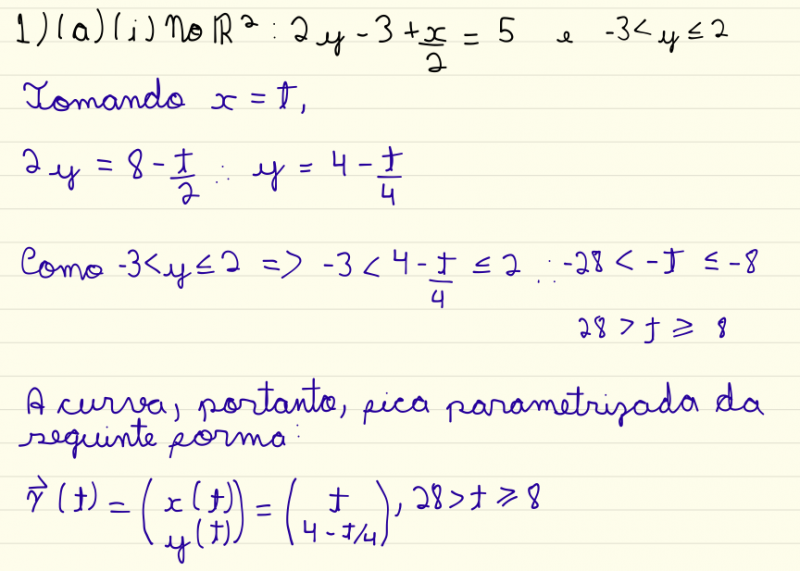 1)(a)(i) No ℝ²: 2y - 3 + x/2 = 5 e -3 < y ≤ 2
Tomando x = t,
2y = 8 - t/2 ∴ y = 4 - t/4
Como -3 < y ≤ 2 => -3 < 4 - t/4 ≤ 2 ∴ -28 < -t ≤ -8
28 > t ≥ 8
A curva, portanto, fica parametrizada da
seguinte forma:
γ⃗(t) = (x(t) y(t)) = (t 4 - t/4), 28 > t ≥ 8